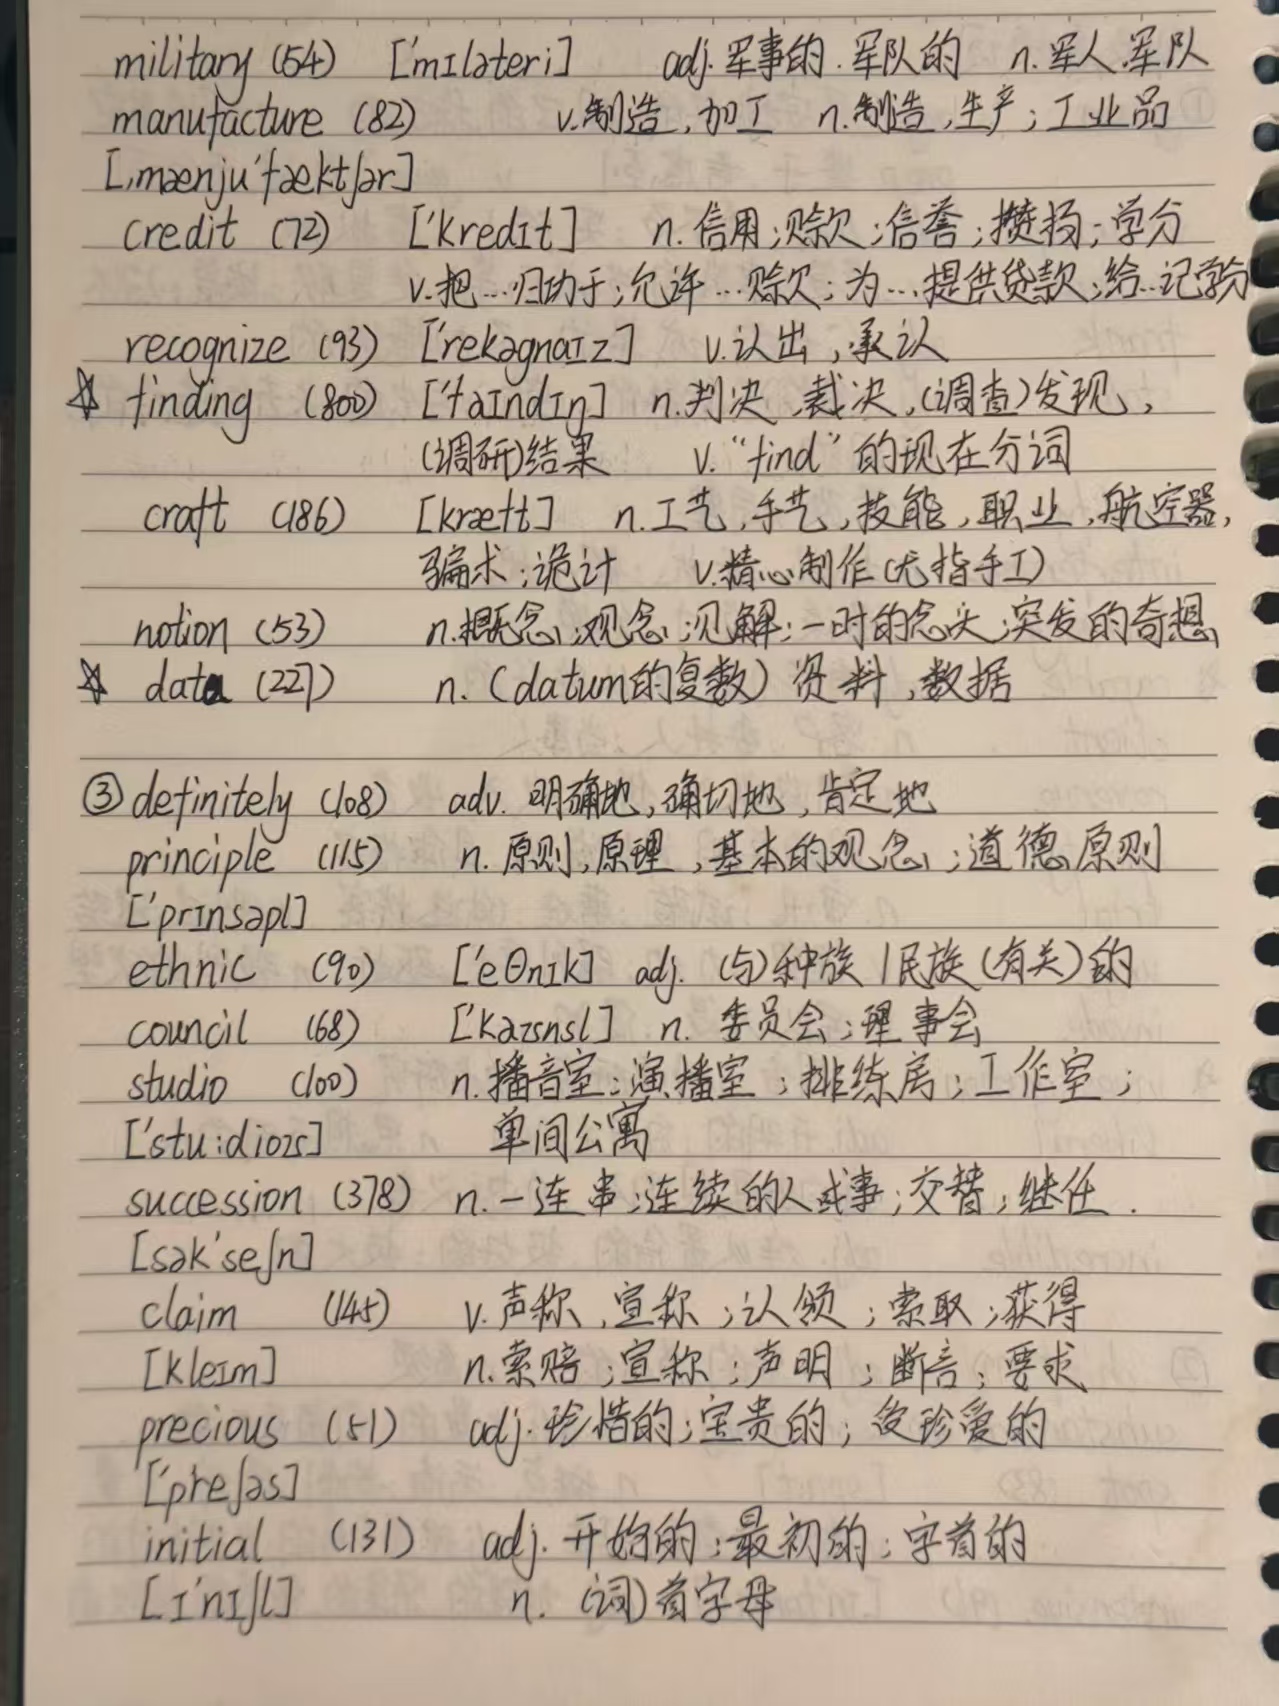 military (54) ['mɪləteri] adj.军事的.军队的 n.军人.军队
manufacture (82) v.制造,加工 n.制造,生产;工业品
[,mænju'fæktʃər]
credit (72) ['kredɪt] n.信用;赊欠;信誉;赞扬;学分
v.把…归功于;允许…赊欠;为…提供贷款;给…记学分
recognize (93) ['rekəgnaɪz] v.认出,承认
☆ finding (800) ['faɪndɪŋ] n.判决,裁决,(调查)发现,
(调研)结果 v."find"的现在分词
craft (186) [kræft] n.工艺,手艺,技能,职业,航空器,
骗术;诡计 v.精心制作(尤指手工)
notion (53) n.概念;观念;见解;一时的念头;突发的奇想
☆ data (227) n.(datum的复数)资料,数据
③ definitely (108) adv.明确地,确切地,肯定地
principle (115) n.原则,原理,基本的观念;道德原则
['prɪnsəpl]
ethnic (90) ['eθnɪk] adj.(与)种族/民族(有关)的
council (68) ['kaʊnsl] n.委员会;理事会
studio (100) n.播音室;演播室;排练房;工作室;
['stu:dioʊ] 单间公寓
succession (378) n.一连串;连续的人或事;交替;继任.
[sək'seʃn]
claim (145) v.声称,宣称;认领;索取;获得
[kleɪm] n.索赔;宣称;声明;断言;要求
precious (51) adj.珍惜的;宝贵的;受珍爱的
['preʃəs]
initial (131) adj.开始的;最初的;字首的
[ɪ'nɪʃl] n.(词)首字母